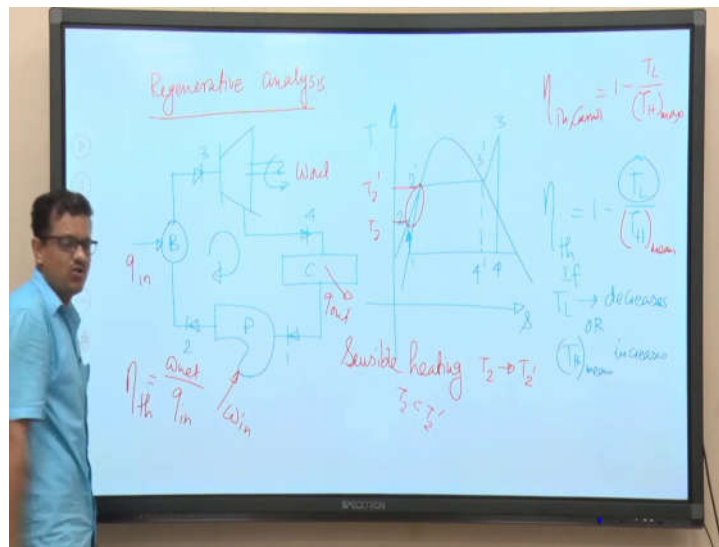 Regenerative analysis
3
B
q in
2
P
1
C
q out
4
η th = w net / q in
w in
T
T2'
T2
2'
2
1
3'
3
4'
4
S
Sensible heating T2 → T2'
T2 < T2'
η th, Carnot = 1 - TL / (TH)
η th = 1 - TL / (TH) mean
If
TL → decreases
OR
(TH) mean increases